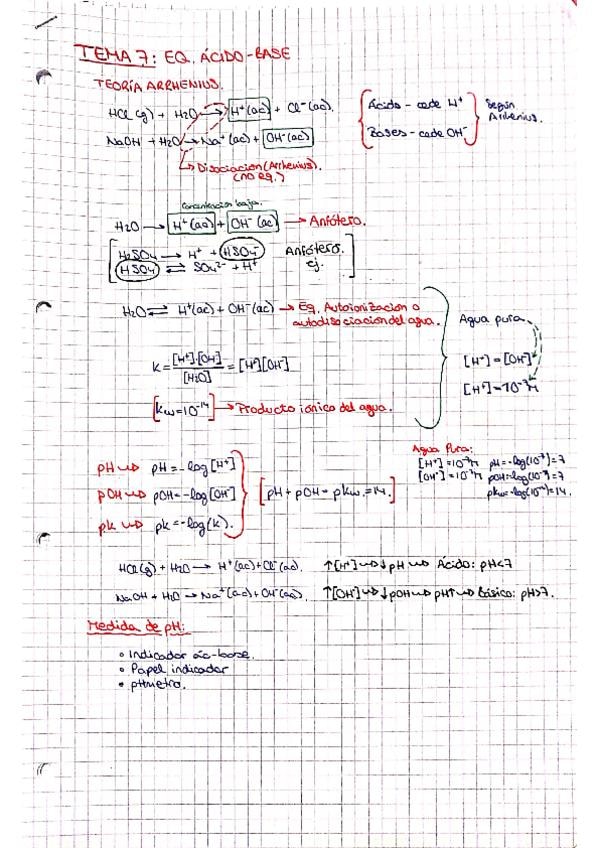 TEMA 7: EQ. ÁCIDO-BASE
TEORÍA ARRHENIUS.
HCl(g) + H₂O → H⁺(ac) + Cl⁻(ac).
NaOH + H₂O → Na⁺(ac) + OH⁻(ac)
Ácido - cede H⁺
Bases - cede OH⁻
Según Arrhenius.
↳ Disociación (Arrhenius).
(no eq.)
Concentración baja.
H₂O → H⁺(ac) + OH⁻(ac) → Anfótero.
H₂SO₄ → H⁺ + HSO₄⁻
HSO₄⁻ ⇌ SO₄²⁻ + H⁺
Anfótero.
ej.
H₂O ⇌ H⁺(ac) + OH⁻(ac) → Eq. Autoionización o
autodisociación del agua.
Agua pura
[H⁺] = [OH⁻]
[H⁺] = 10⁻⁷M
K = [H⁺]·[OH⁻] / [H₂O] = [H⁺][OH⁻]
[kw = 10⁻¹⁴] → Producto iónico del agua.
Agua Pura:
[H⁺] = 10⁻⁷M pH = -log(10⁻⁷) = 7
[OH⁻] = 10⁻⁷M pOH = -log(10⁻⁷) = 7
pkw = -log(10⁻¹⁴) = 14.
pH → pH = -log[H⁺]
pOH → pOH = -log[OH⁻]
pk → pk = -log(k).
[pH + pOH = pkw. = 14.]
HCl(g) + H₂O → H⁺(ac) + Cl⁻(ac). ↑[H⁺] → ↓pH → Ácido: pH<7
NaOH + H₂O → Na⁺(ac) + OH⁻(ac). ↑[OH⁻] → ↓pOH → pH↑ → Básico: pH>7.
Medida de pH:
• Indicador ác-base.
• Papel indicador
• pHmetro.